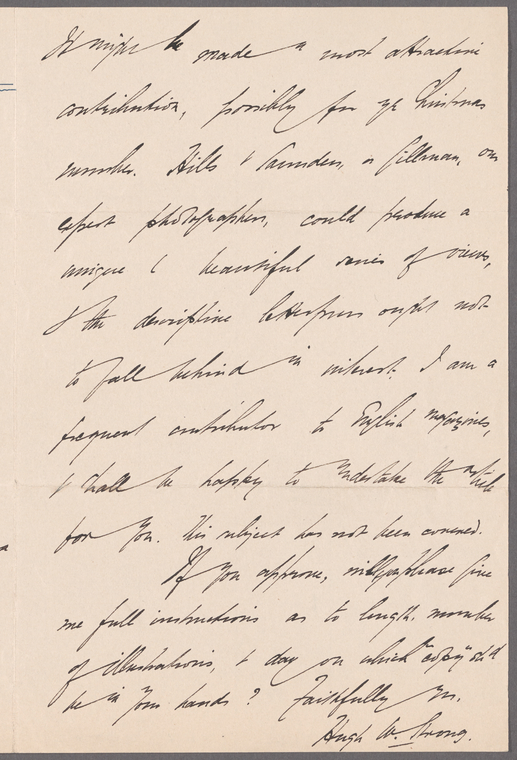 It might be made a most attractive
contribution, possibly for yr Christmas
number. Hills & Saunders, or Gillman, our
expert photographers, could produce a
unique & beautiful series of views,
& the descriptive letterpress ought not
to fall behind in interest. I am a
frequent contributor to English magazines,
& shall be happy to undertake the article
for you. This subject has not been covered.
If you approve, will you please give
me full instructions as to length, number
of illustrations, & day on which "copy" shd
be in your hands? Faithfully Yrs.
Hugh W. Strong.